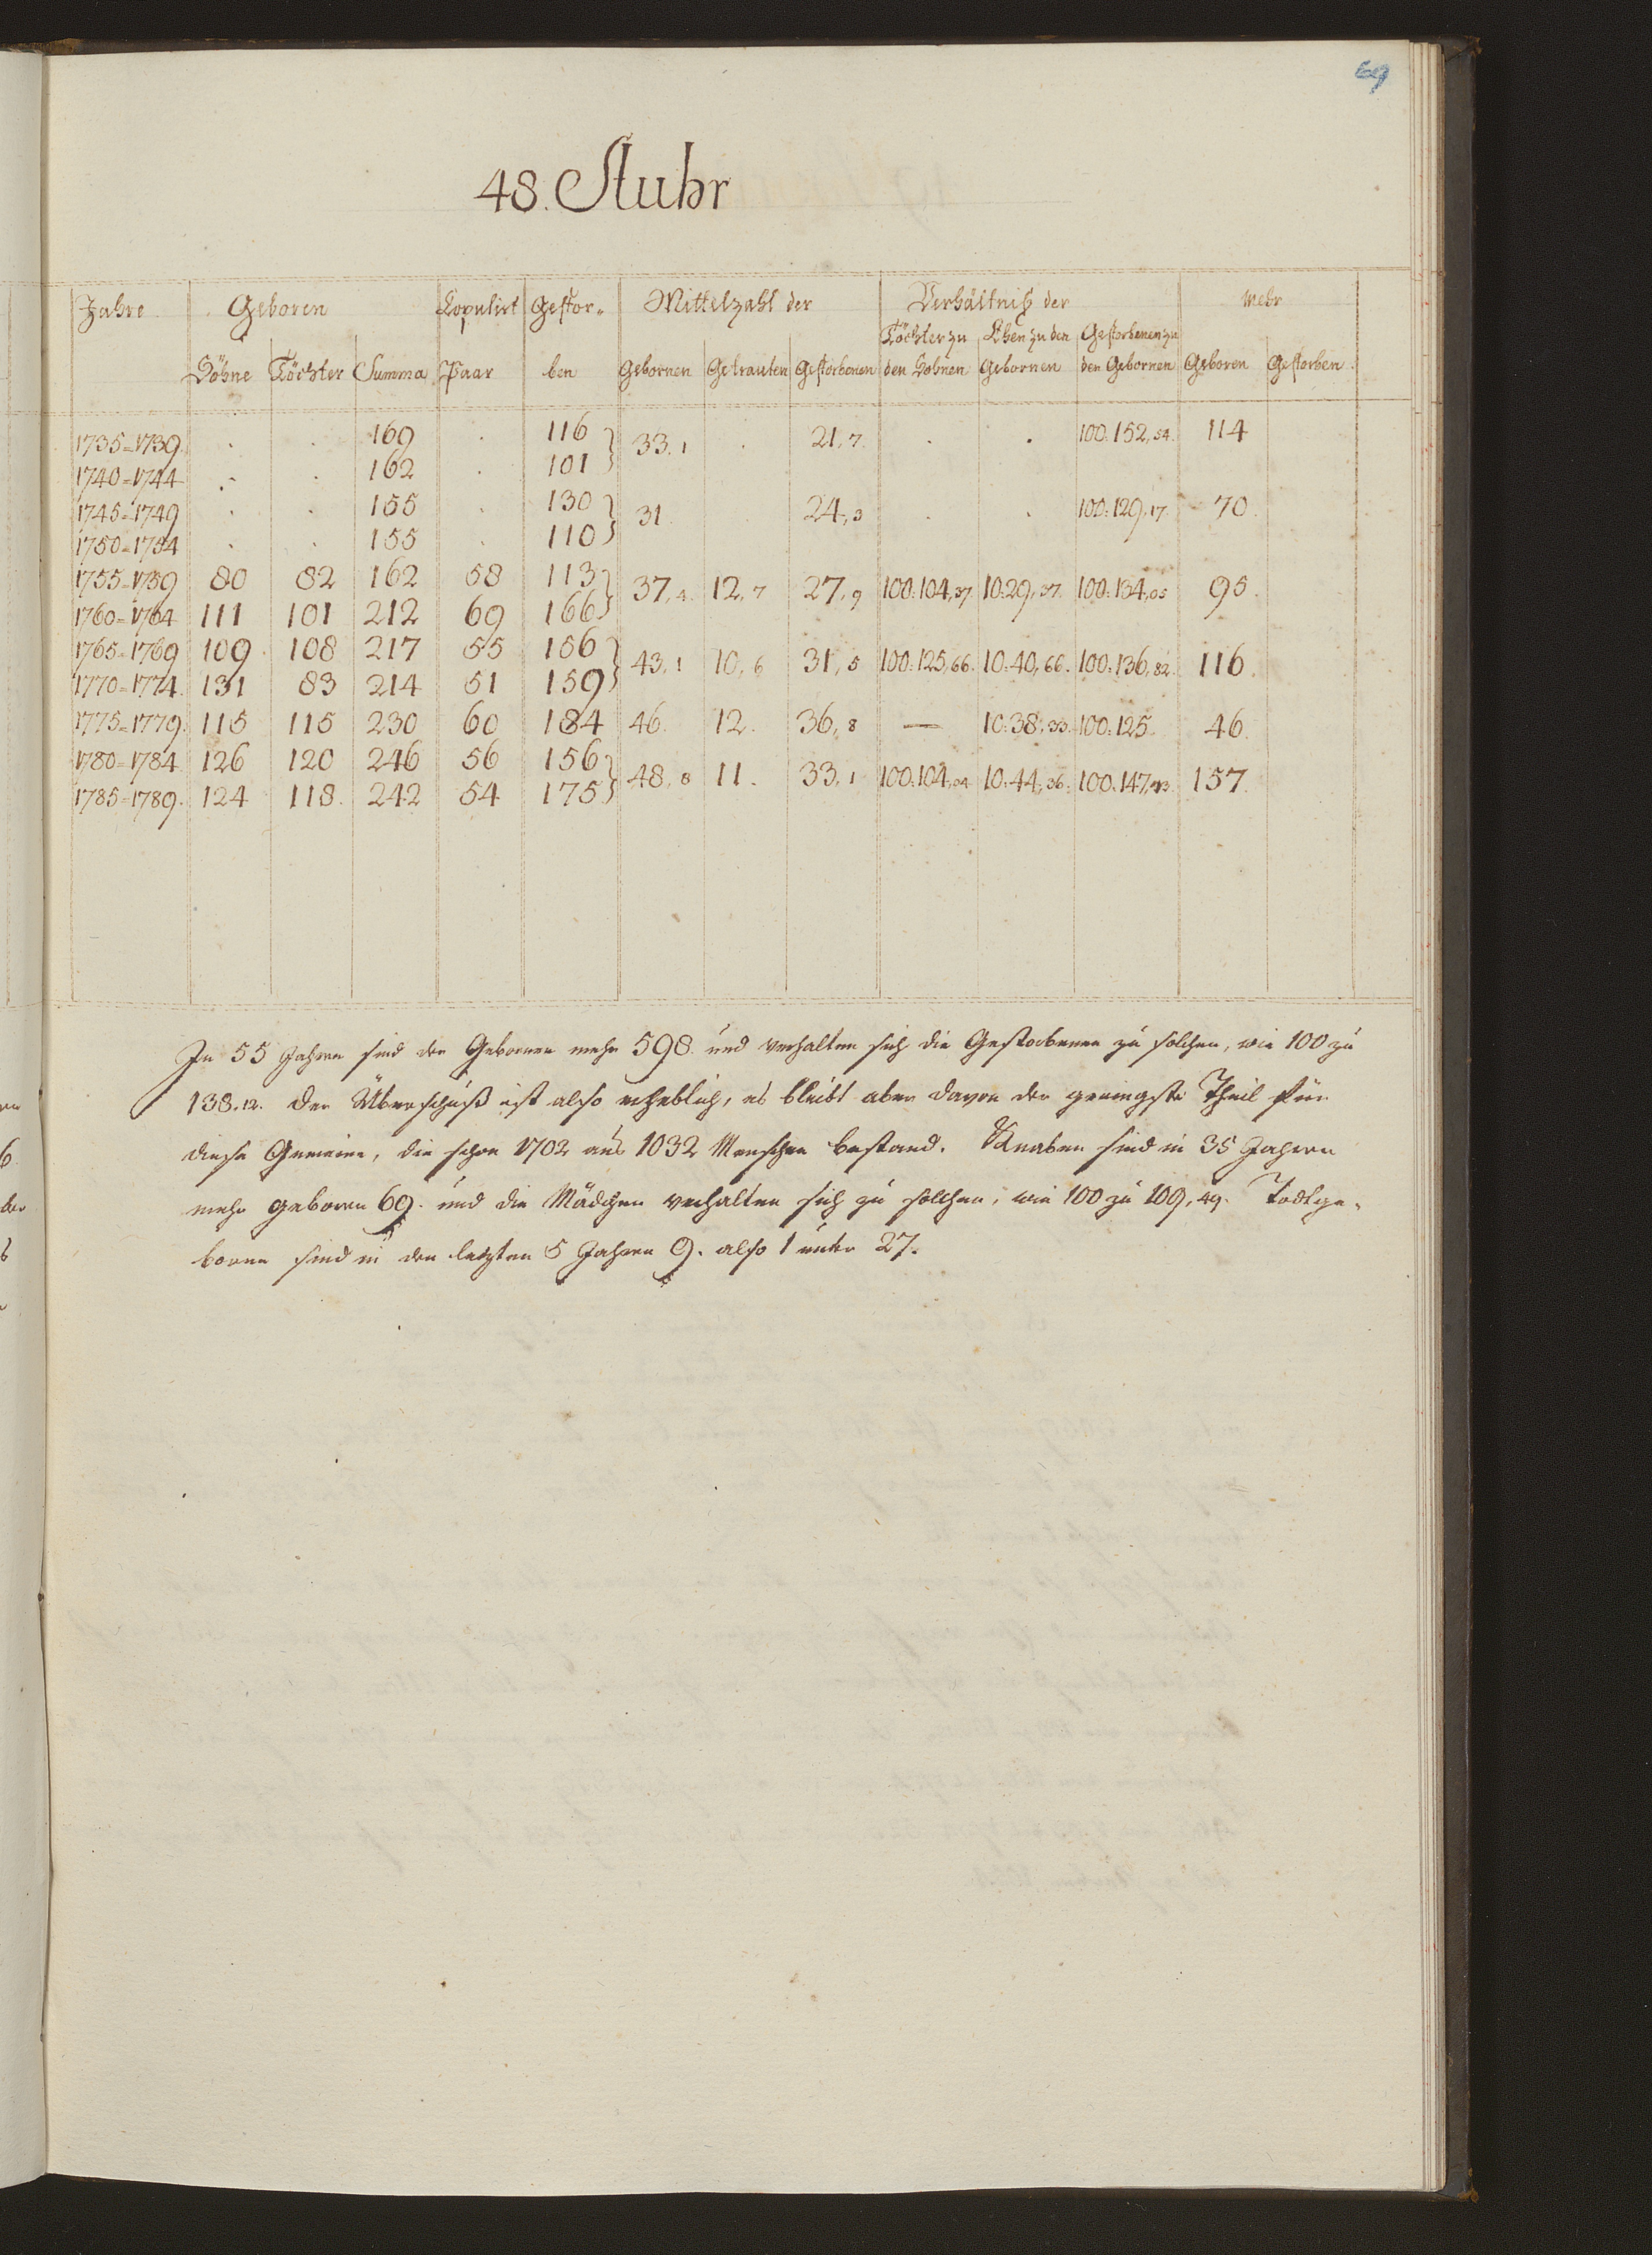 69
48. Stuhr
Jahre Geboren Kopulirt Gestor- Mittelzahl der Verhältniß der Mehr
Töchter zu Ehen zu den Gestorbenen zu
Söhne Töchter Summa Paar ben Gebornen Getrauten Gestorbenen den Söhnen Gebornen den Gebornen Geboren Gestorben
1735=1739. . . 169 . 116 33,1 . 21,7. . . 100:152,54. 114
1740=1744 . . 162 . 101
1745=1749 . . 155 . 130 31 24,3 . . 100:129,17. 70
1750=1754 . . 155 . 110
1755=1759 80 82 162 58 113 37,4. 12,7 27,9 100:104,37 10:29,37. 100:134,05 95.
1760=1764 111 101 212 69 166
1765=1769 109 108 217 55 156 43,1 10,6 31,5 100:125,66. 10:40,66. 100:136,82. 116.
1770=1774. 131 83 214 51 159
1775=1779. 115 115 230 60 184 46. 12. 36,8 — 10:38,33. 100:125. 46.
1780=1784 126 120 246 56 156 48,8 11. 33,1 100:104,34 10:44,36. 100:147,43 157.
1785=1789. 124 118. 242 54 175
In 55 Jahren sind der Gebornen mehr 598. und verhalten sich die Gestorbenen zu solchen, wie 100 zu
138.12. Der Überschuß ist also erheblich, es bleibt aber davon der geringste Theil für
diese Gemeine, die schon 1702 aus 1032 Menschen bestand. Knaben sind in 35 Jahren
mehr geboren 69. und die Mädchen verhalten sich zu solchen, wie 100 zu 109,49. Todtge-
borne sind in den letzten 5 Jahren 9. also 1 unter 27.